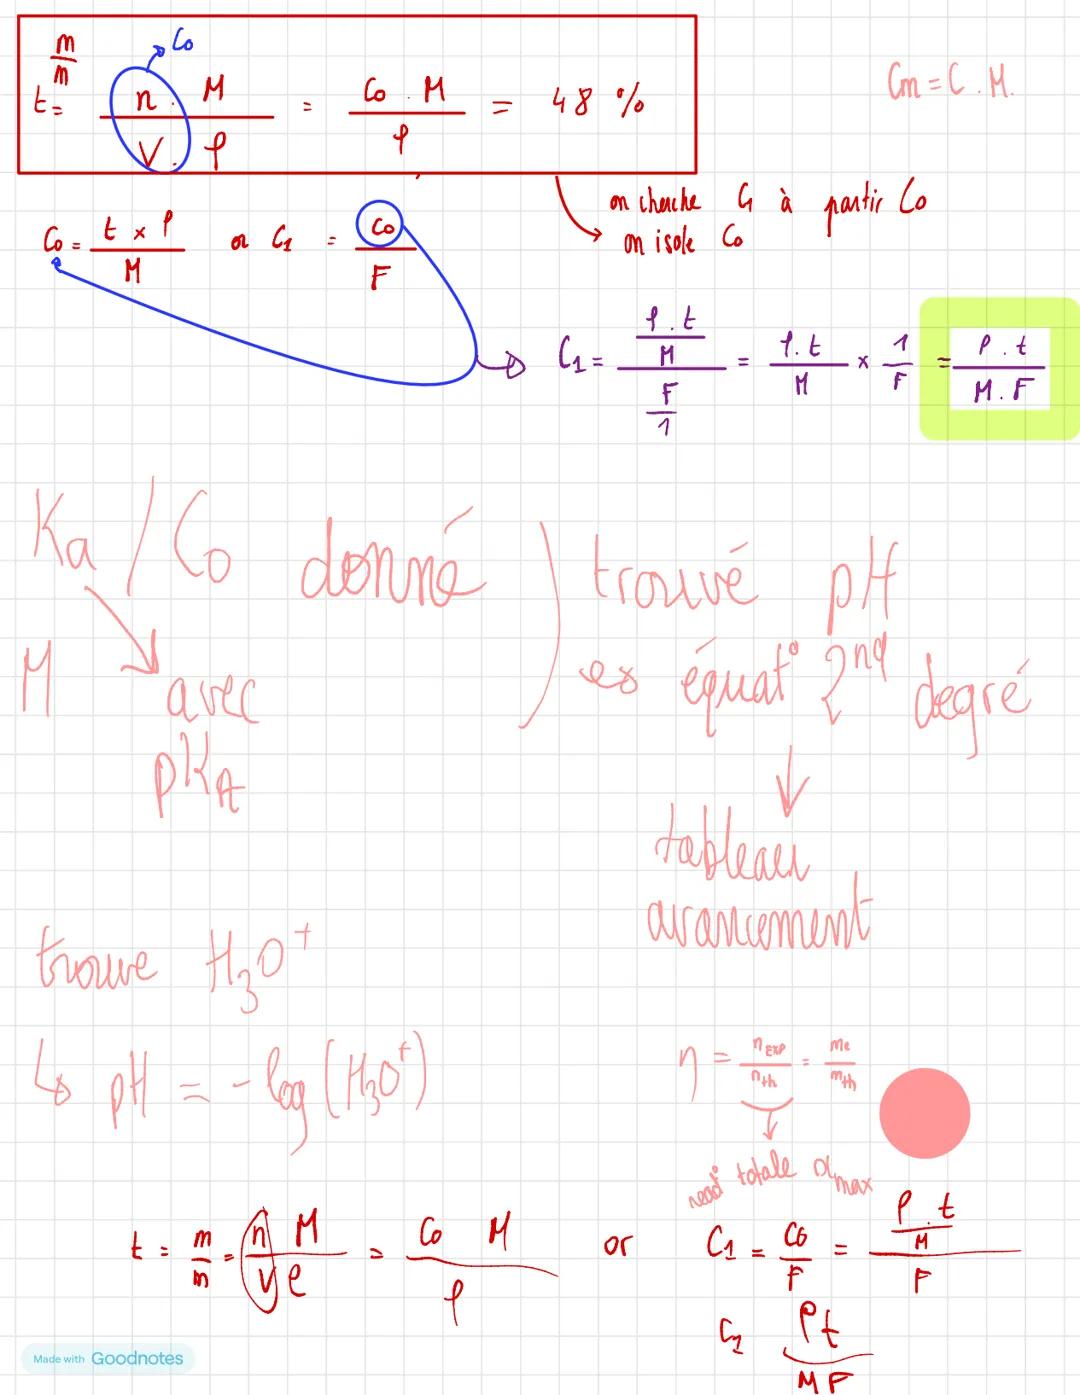 m/m
t = (n . M)/(V . ρ) = (C₀ . M)/ρ = 48 %
C₀
Cm = C . M.
on cherche C₁ à partir C₀
on isole C₀
C₀ = (t × ρ)/M or C₁ = C₀/F
C₁ = ((ρ . t)/M)/(F/1) = (ρ . t)/M × 1/F = (ρ . t)/(M . F)
Ka / C₀ donné ) trouvé pH
M avec
pKA
↳ équat° 2nd degré
↓
tableau
avancement
trouve H₃O⁺
↳ pH = - log (H₃O⁺)
η = nExp/nth = me/mth
↓
réact° totale αmax
t = m/m = (n M)/(V ρ) = (C₀ M)/ρ or C₁ = C₀/F = ((ρ . t)/M)/F
C₁ ρt/MF
Made with Goodnotes